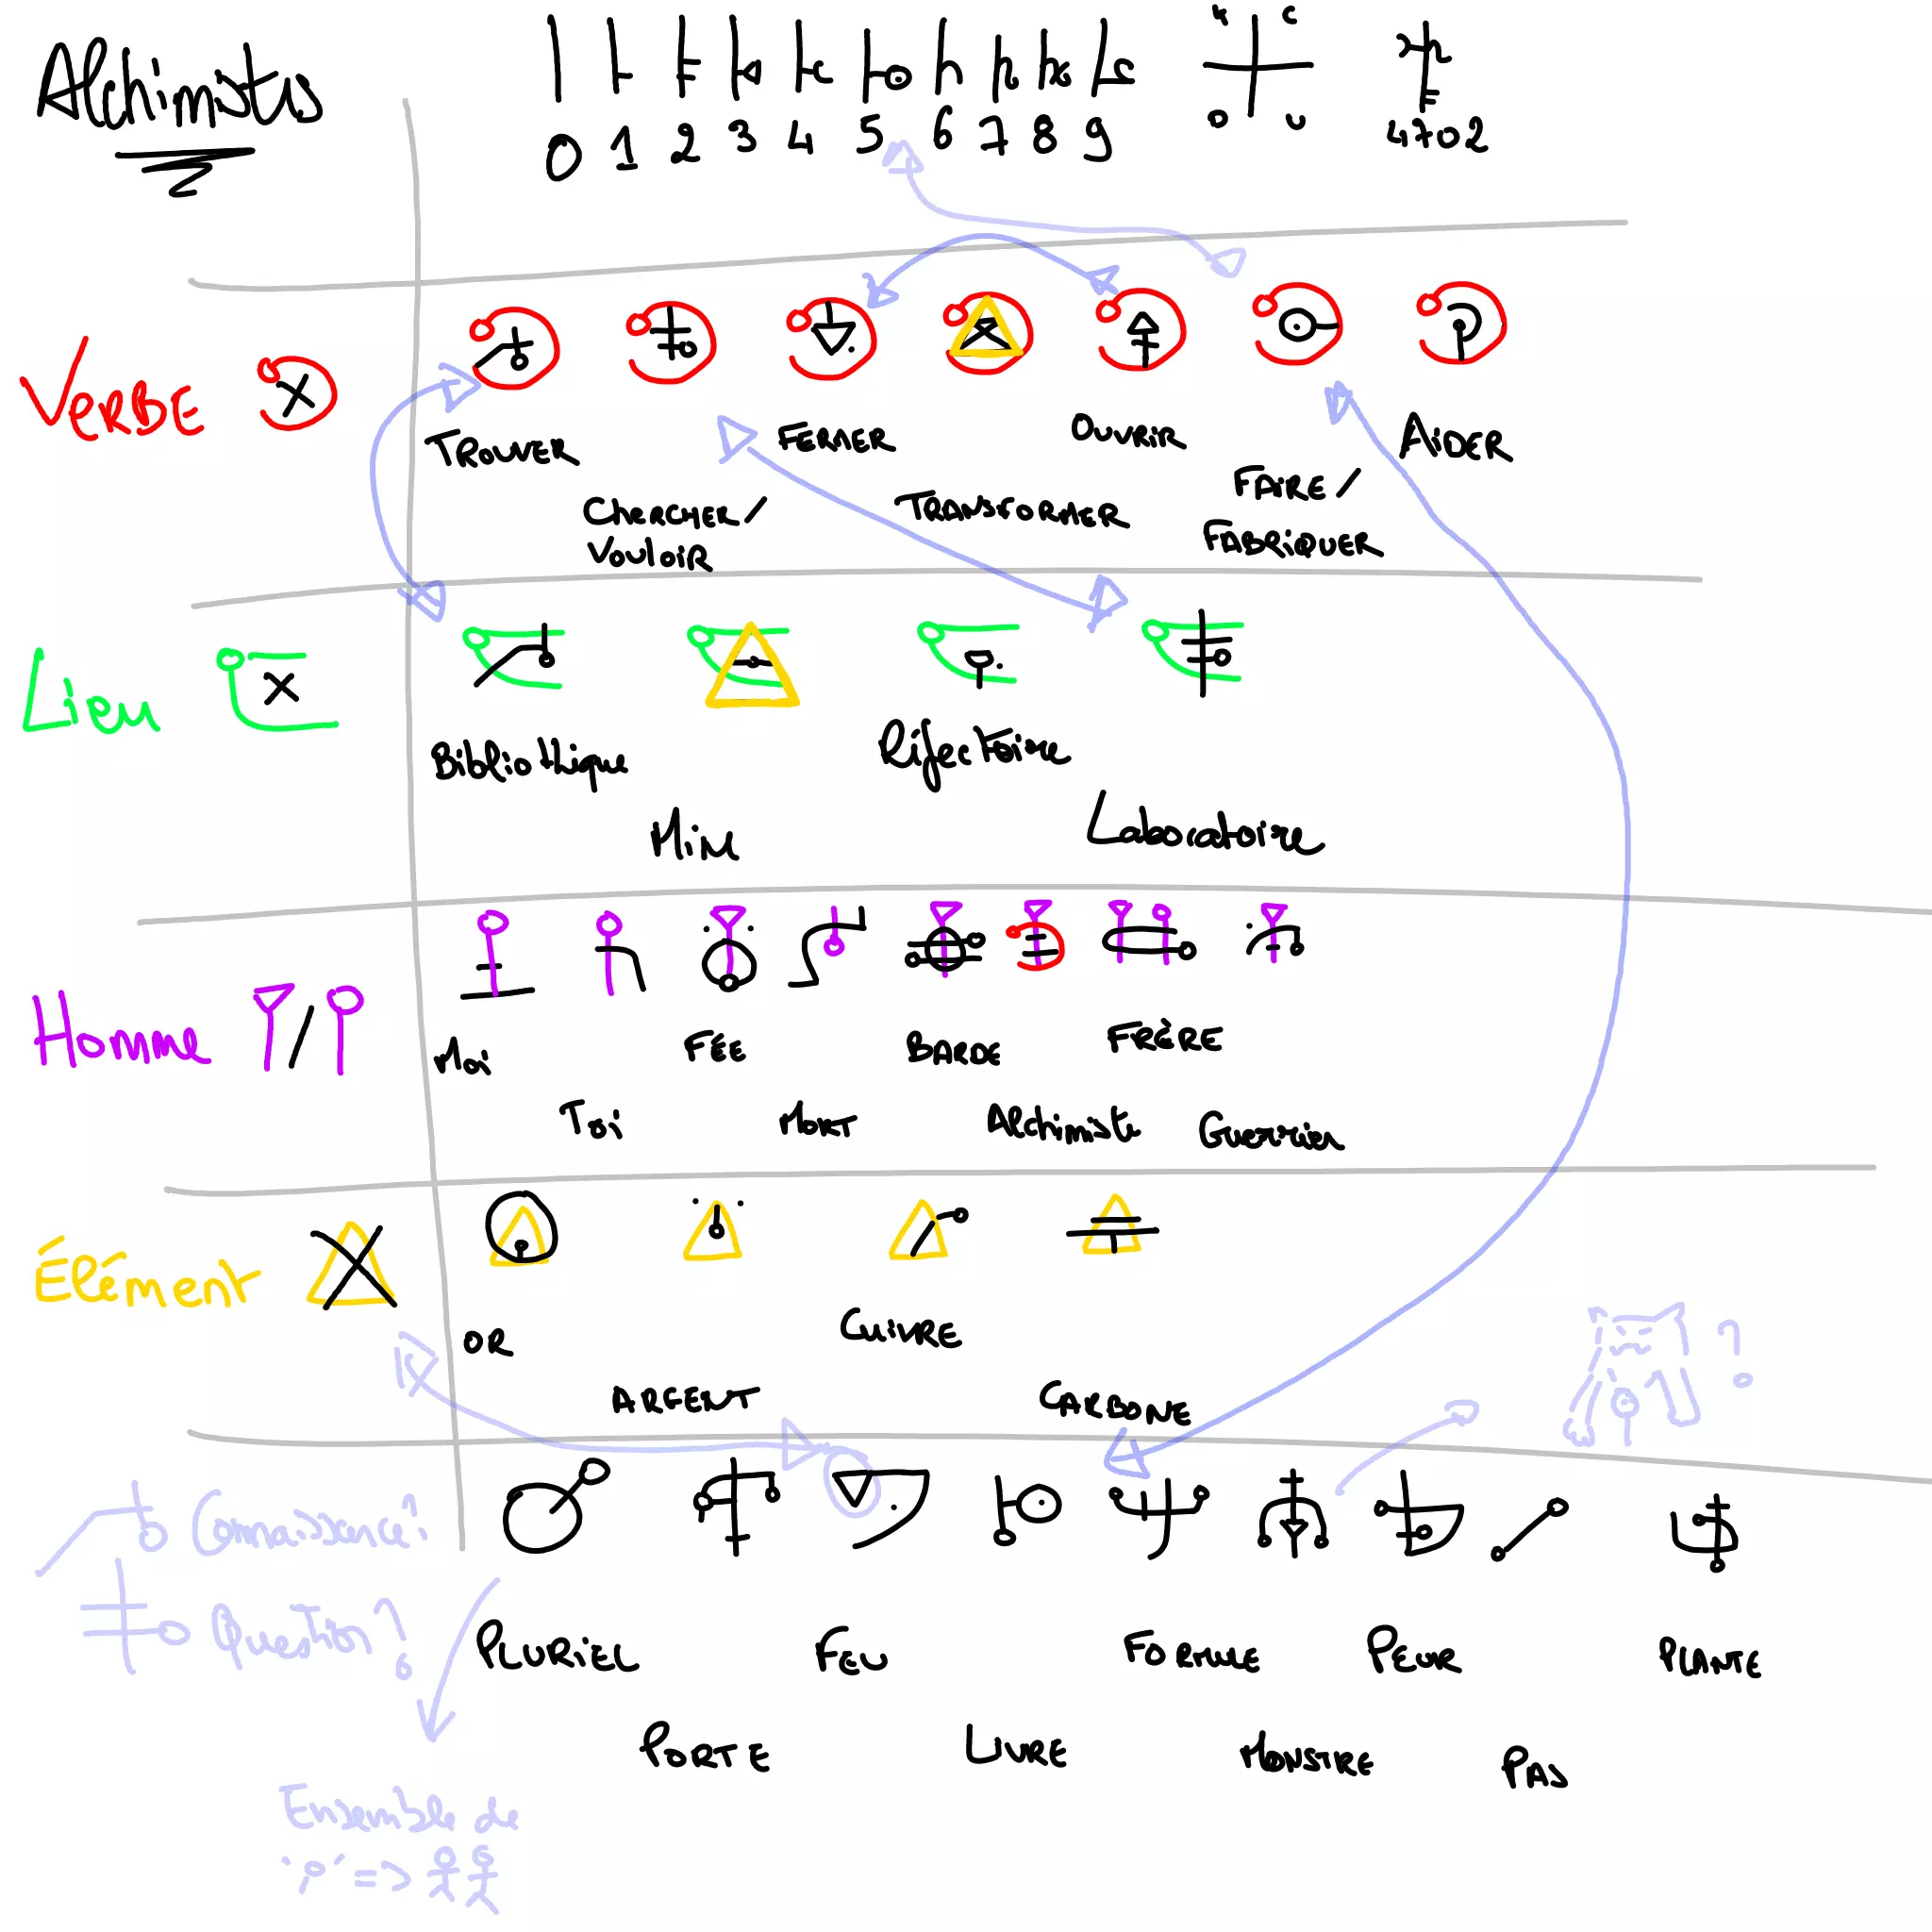 Alchimistes
0 1 2 3 4 5 6 7 8 9
4702
VERBE
TROUVER
CHERCHER/
VOULOIR
FERMER
TRANSFORMER
OUVRIR
FAIRE/
FABRIQUER
AIDER
Lieu
Bibliothèque
Mine
Réfectoire
Laboratoire
Homme
Moi
Toi
FÉE
MORT
BARDE
Alchimiste
FRÈRE
Guerrier
Élément
OR
ARGENT
CUIVRE
CARBONE
?
Connaissance?
Question?
PLURIEL
PORTE
FEU
LIVRE
FORMULE
MONSTRE
PEUR
PAS
PLANTE
Ensemble de